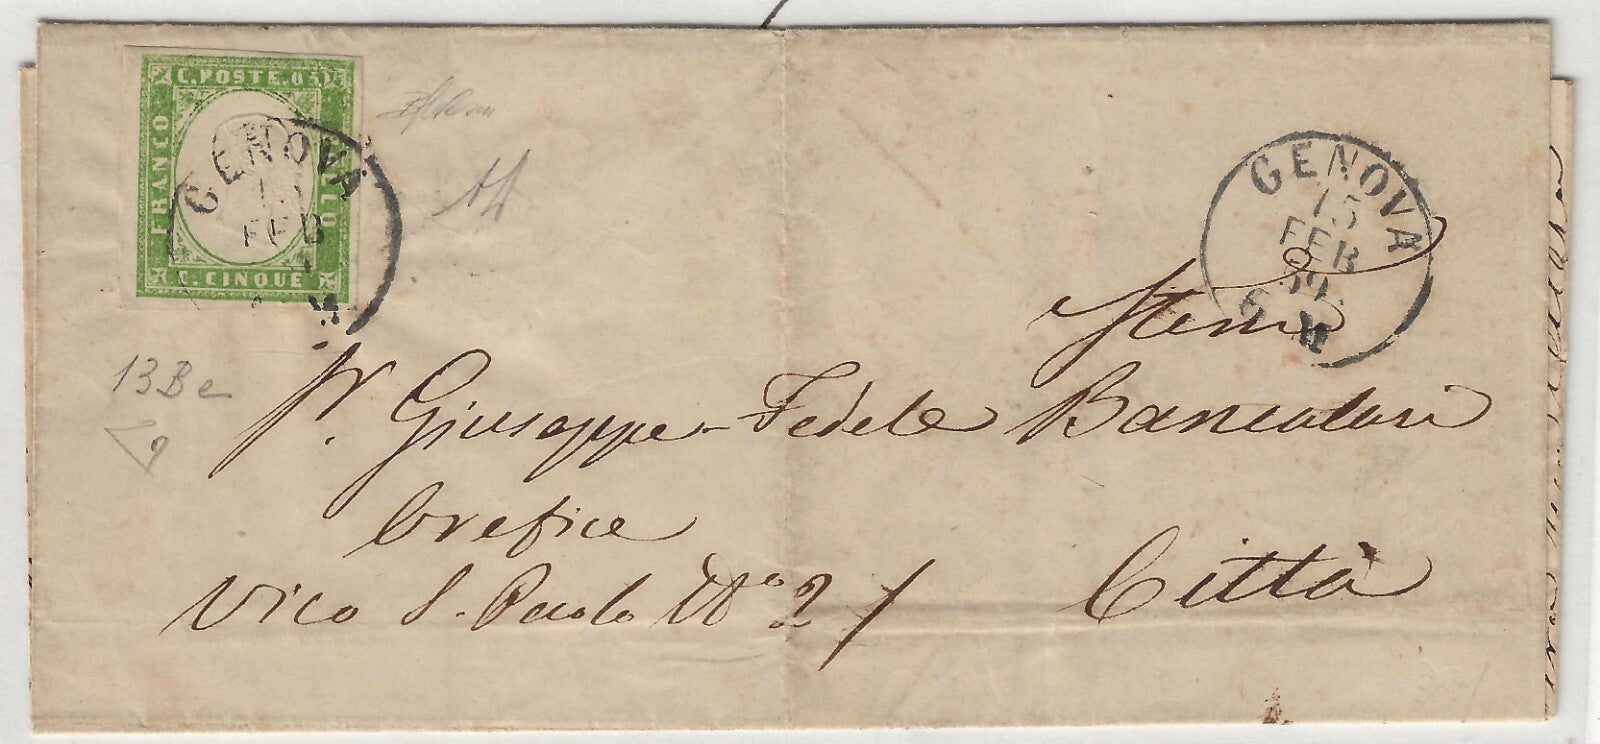 C. POSTE. 05
FRANCO
BOLLO
C. CINQUE
GENOVA
15
FEB
GENOVA
15
FEB
59
6 M
13Be
Sr. Giuseppe Fedele Bancalari
Orefice
Vico S. Paolo No. 2
Città